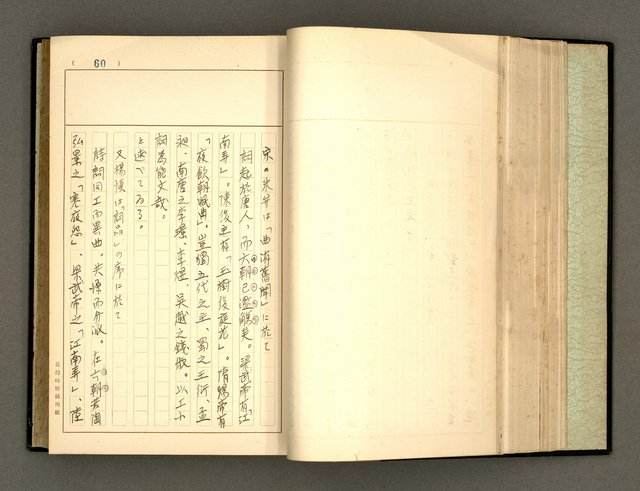 ( 60 )
宋の朱弁は「曲洧舊聞」に於て
詞起於唐人，而六朝已濫觴矣。梁武帝有「江
南弄」。陳後主有「玉樹後庭花」。隋煬帝有
「夜飲朝眠曲」。豈獨五代之主、蜀之王衍、孟
昶、南唐之李璟、李煜、吳越之錢俶。以工小
詞為能文哉。
と述べてゐる。
又楊慎は「詞品」の序に於て
詩詞同工而異曲。共源而分派。在六朝若陶
弘景之「寒夜怨」、梁武帝之「江南弄」、陸
黃得時原稿用紙